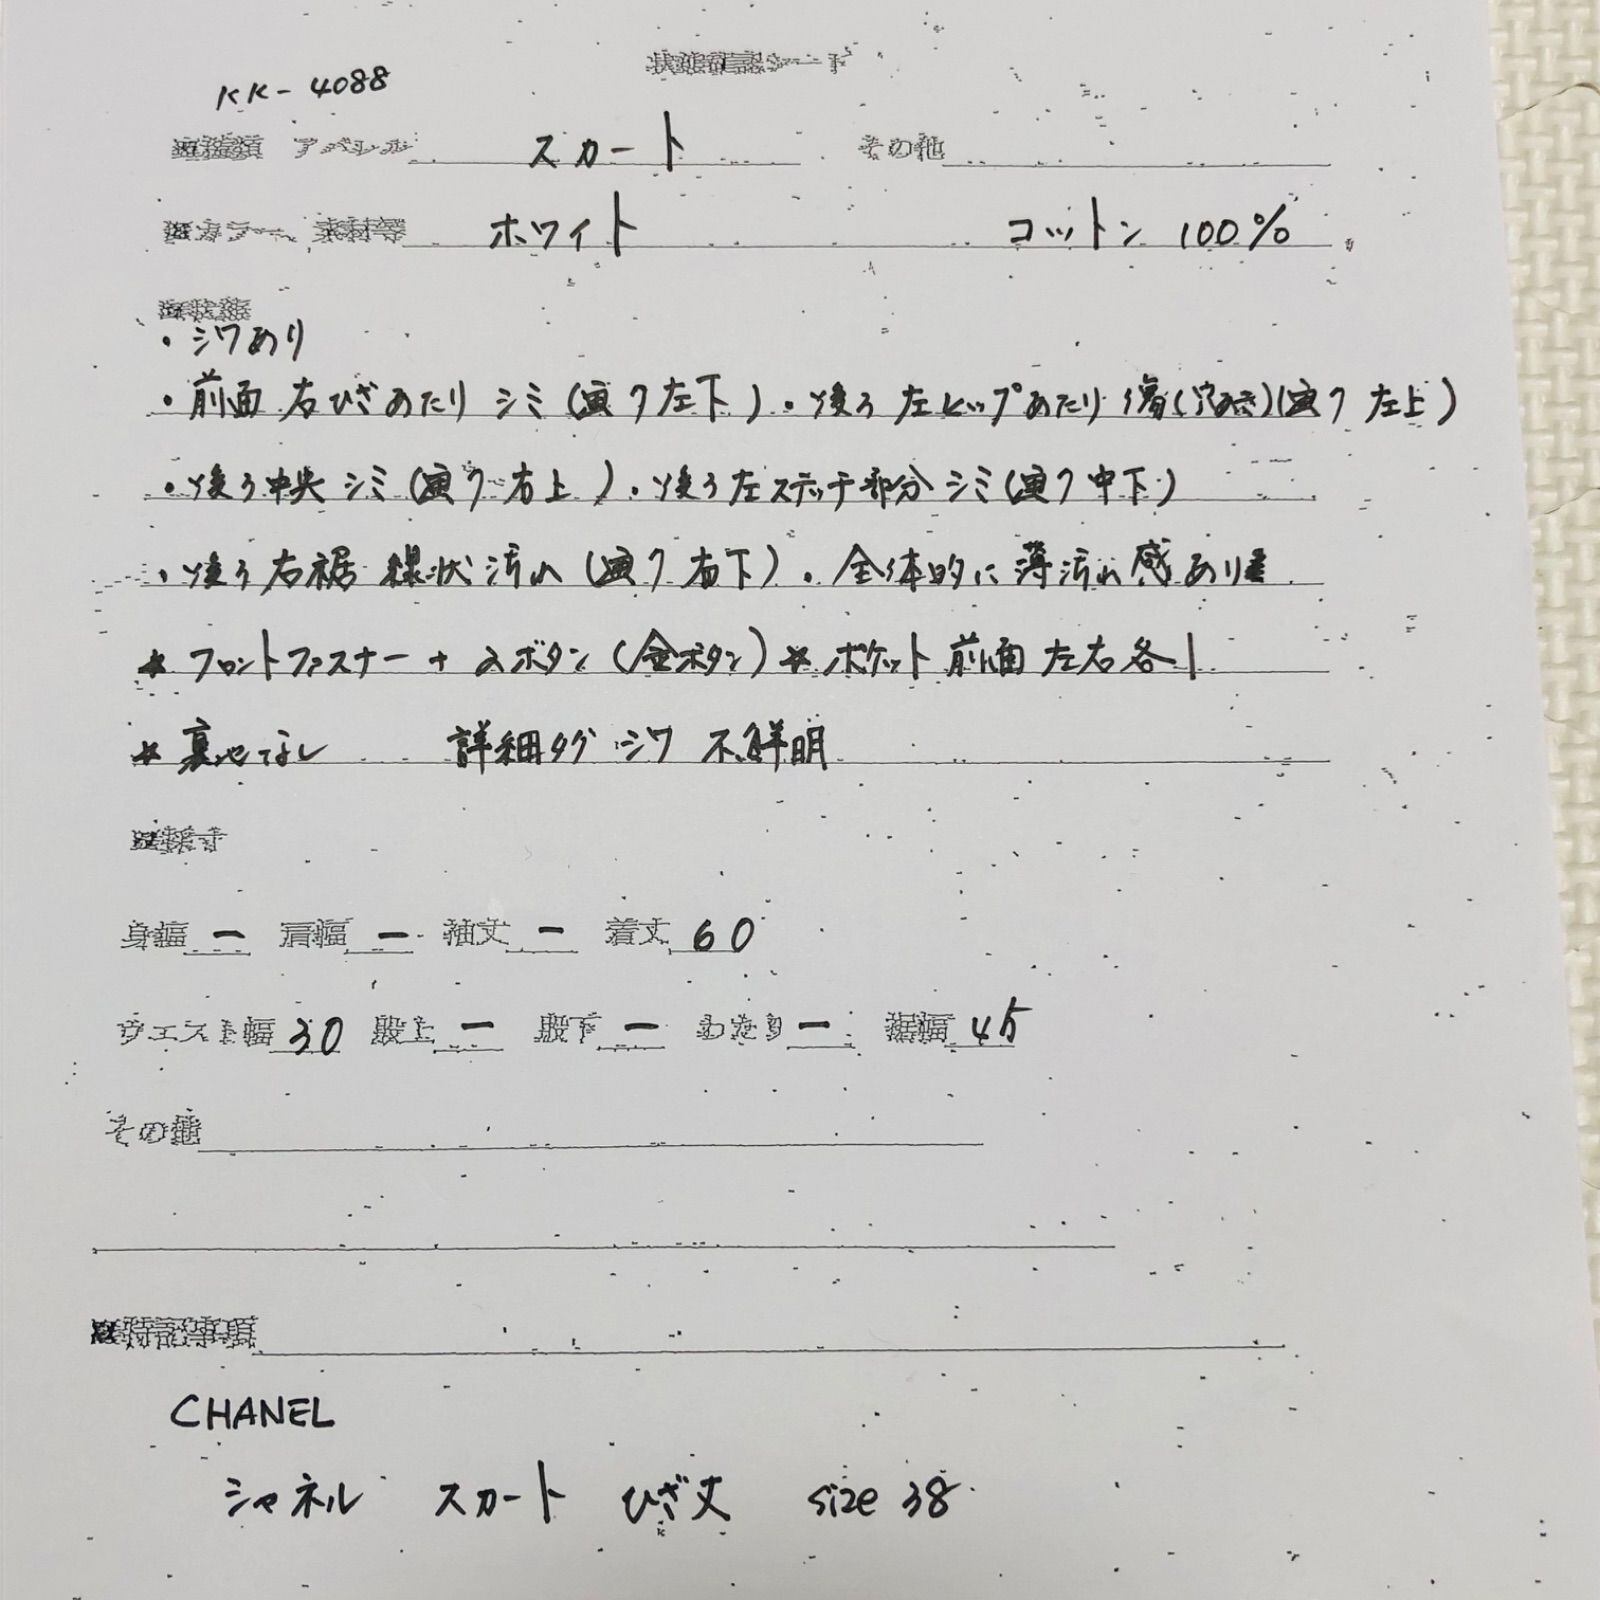 状態確認シート
KK-4088
アパレル スカート その他
カラー、素材等 ホワイト コットン 100%
・シワあり
・前面 右ひざあたり シミ(画ク左下)・後ろ 左ヒップあたり 傷(穴あき)(画ク 左上)
・後ろ中央 シミ(画ク右上)・後ろ左ステッチ部分 シミ(画ク中下)
・後ろ右裾 線状汚れ(画ク右下)・全体的に薄汚れ感あり
* フロントファスナー + 2ボタン(金ボタン)* ポケット 前面 左右各1
* 裏地なし 詳細タグ シワ 不鮮明
採寸
身幅 ー 肩幅 ー 袖丈 ー 着丈 60
ウエスト幅 30 股上 ー 股下 ー わたり ー 裾幅 45
その他
特記事項
CHANEL
シャネル スカート ひざ丈 size 38